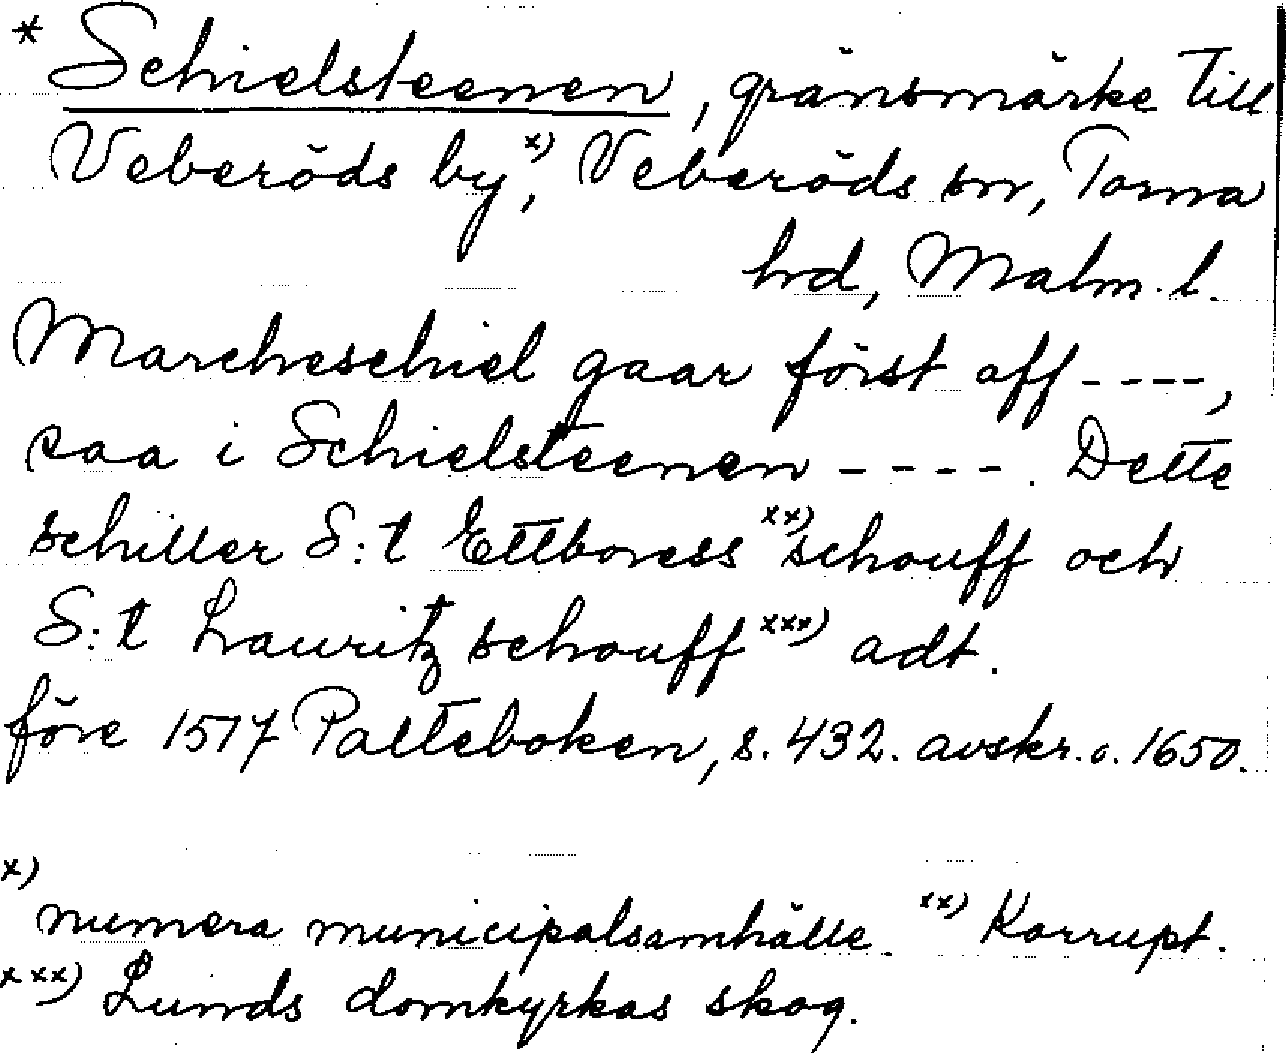 * Schielsteenen, gränsmärke till
Veberöds by,x) Veberöds sn, Torna
hrd, Malm. l.
Marcheschiel gaar först aff ----,
saa i Schielsteenen ----. Dette
schiller S:t Ettboress xx) schouff och
S:t Lauritz schouff xxx) adt.
före 1517 Palteboken, s. 432. avskr. o. 1650.
x)
numera municipalsamhälle. xx) Korrupt.
xxx) Lunds domkyrkas skog.